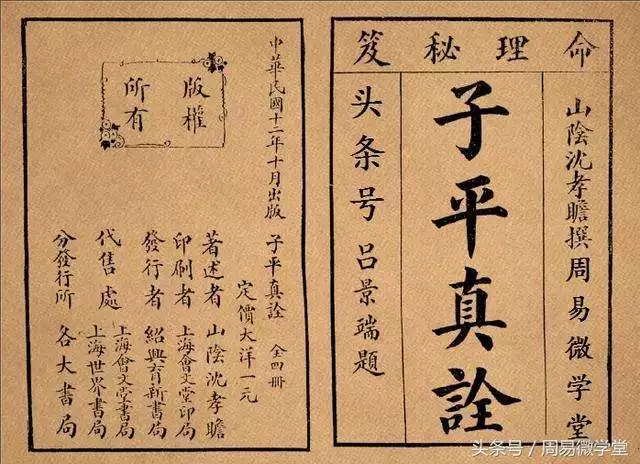 命理秘笈
山陰沈孝瞻撰周易微学堂
子平真詮
头条号吕景端题
版權
所有
中華民國十二年十月出版
子平真詮 全四冊
定價大洋一元
著述者 山陰沈孝瞻
印刷者 上海會文堂印局
發行者 紹興育新書局
代售處 上海會文堂書局
上海世界書局
分發行所 各大書局
头条号 / 周易微学堂